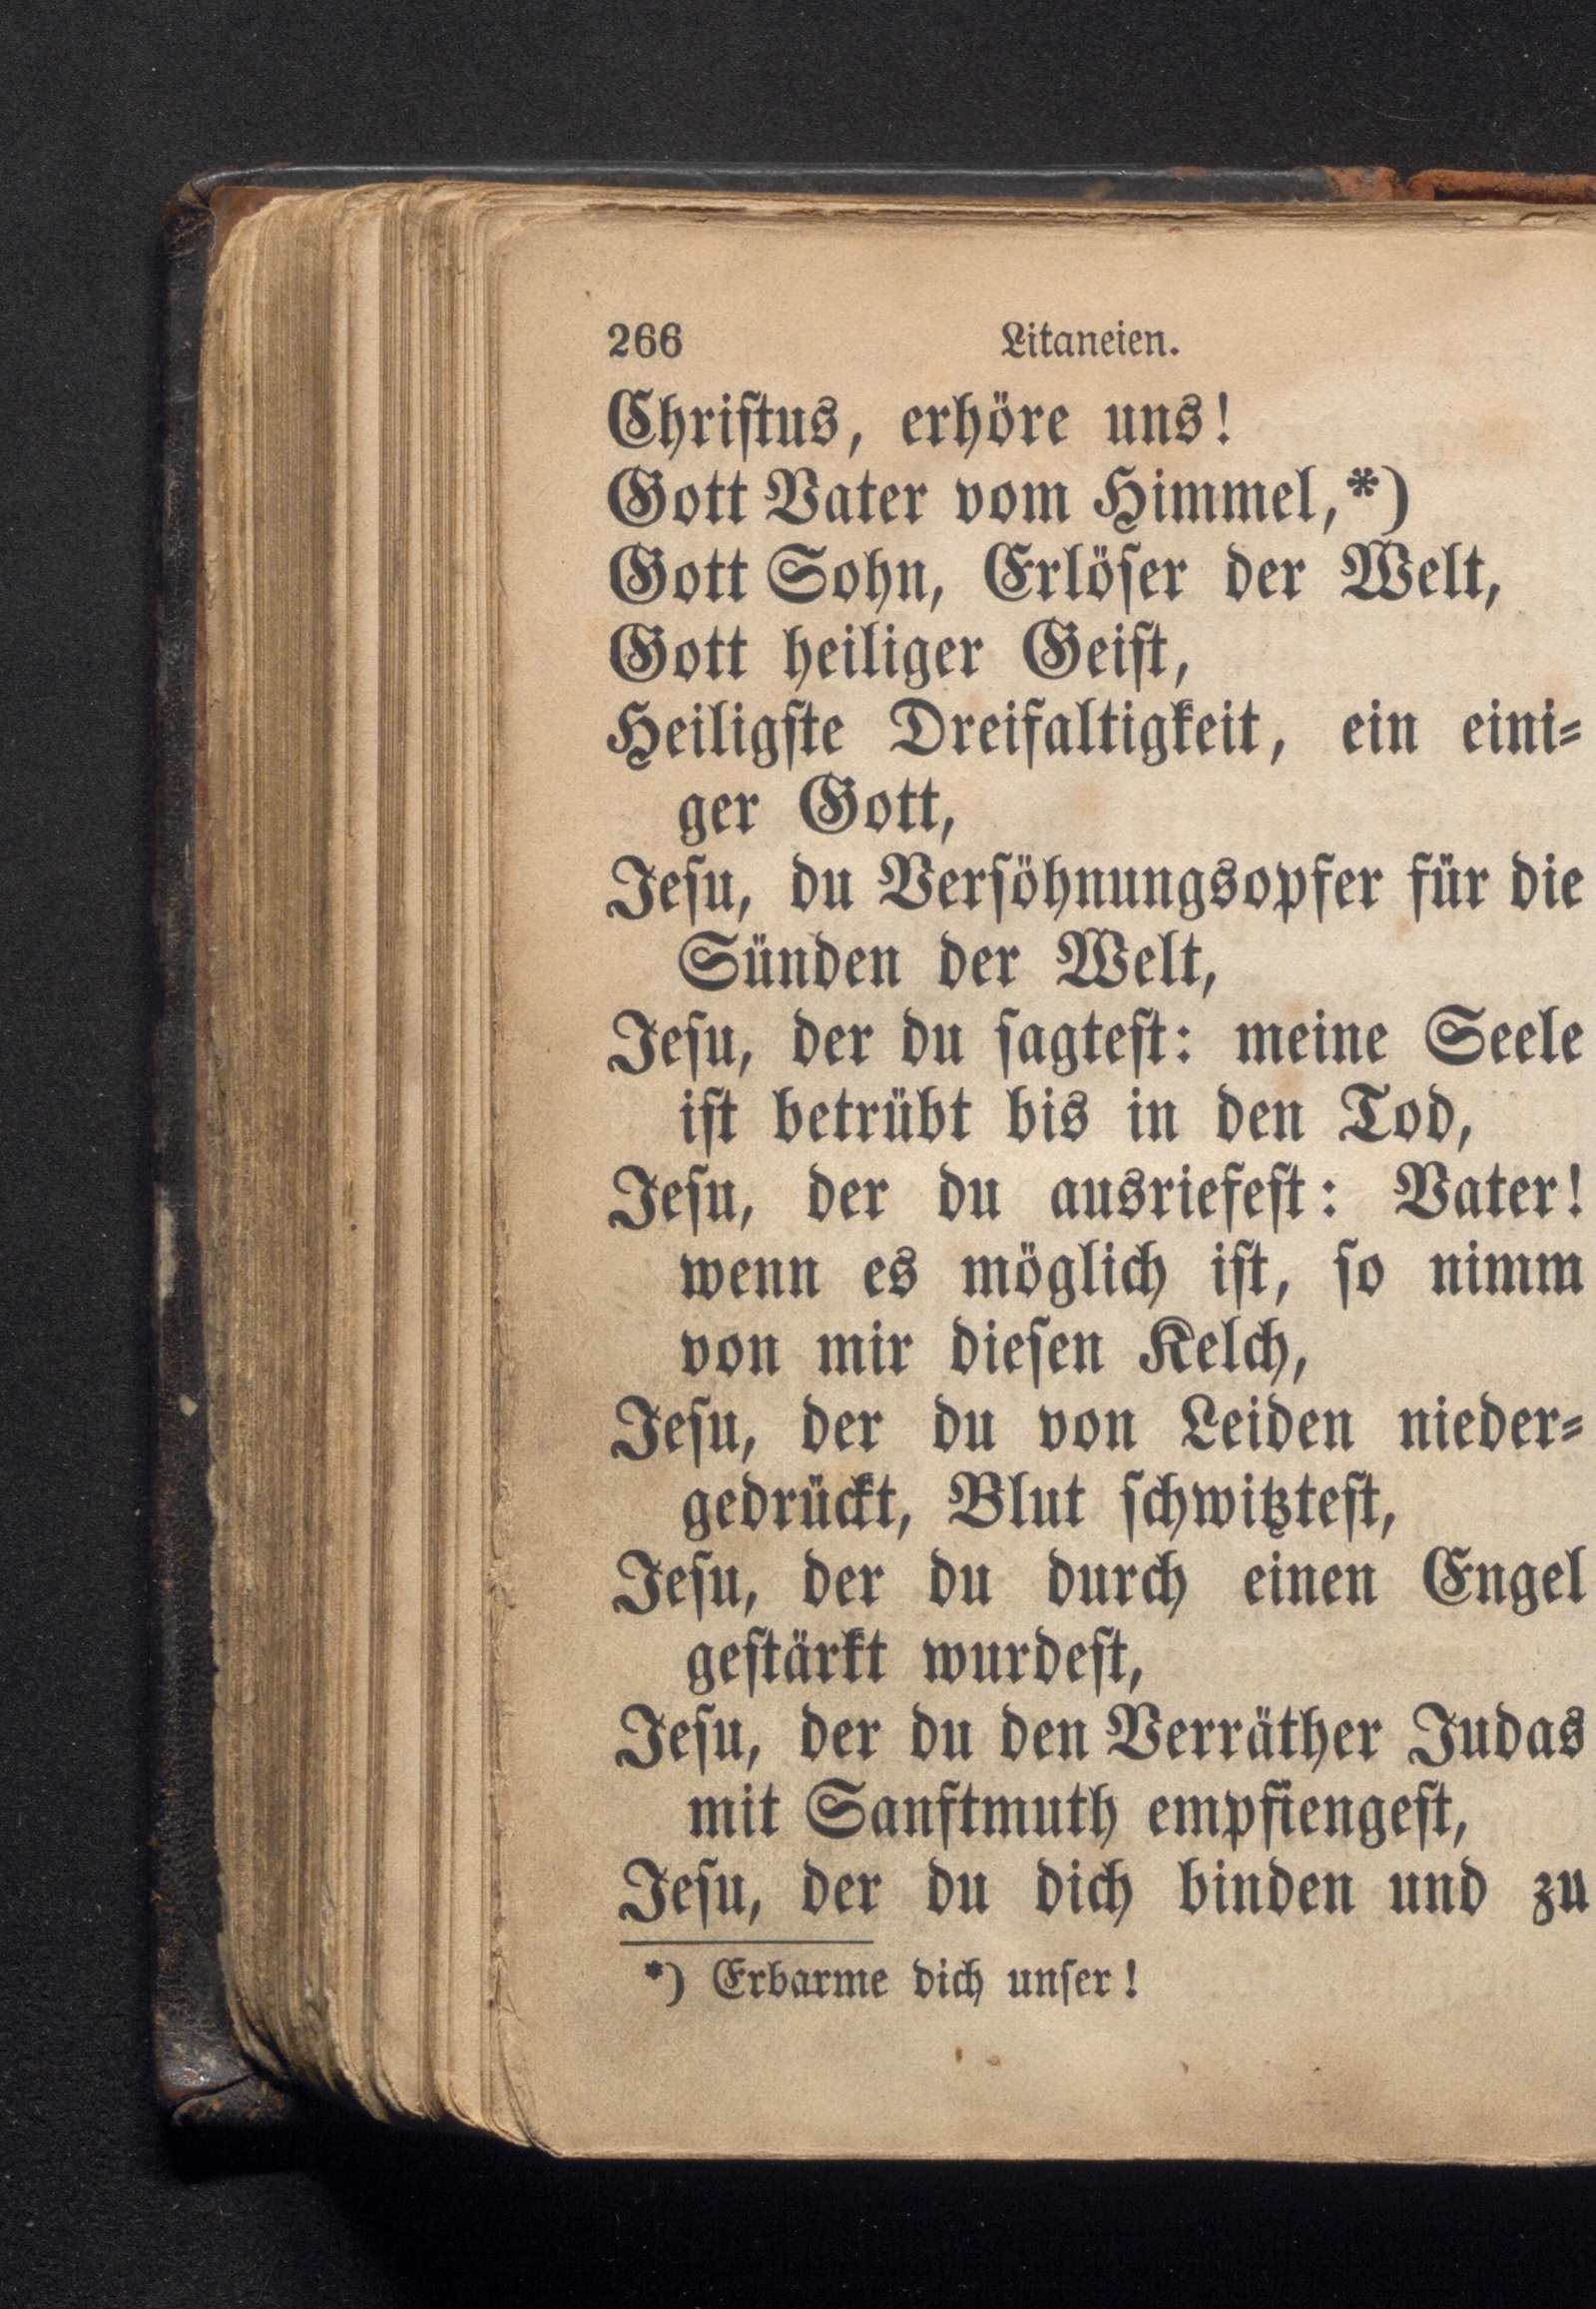 266 Litaneien.
Chriſtus, erhöre uns!
Gott Vater vom Himmel,*)
Gott Sohn, Erlöſer der Welt,
Gott heiliger Geiſt,
Heiligſte Dreifaltigkeit, ein eini⸗
ger Gott,
Jeſu, du Verſöhnungsopfer für die
Sünden der Welt,
Jeſu, der du ſagteſt: meine Seele
iſt betrübt bis in den Tod,
Jeſu, der du ausriefeſt: Vater!
wenn es möglich iſt, ſo nimm
von mir dieſen Kelch,
Jeſu, der du von Leiden nieder⸗
gedrückt, Blut ſchwitzteſt,
Jeſu, der du durch einen Engel
geſtärkt wurdeſt,
Jeſu, der du den Verräther Judas
mit Sanftmuth empfiengeſt,
Jeſu, der du dich binden und zu
*) Erbarme dich unſer!